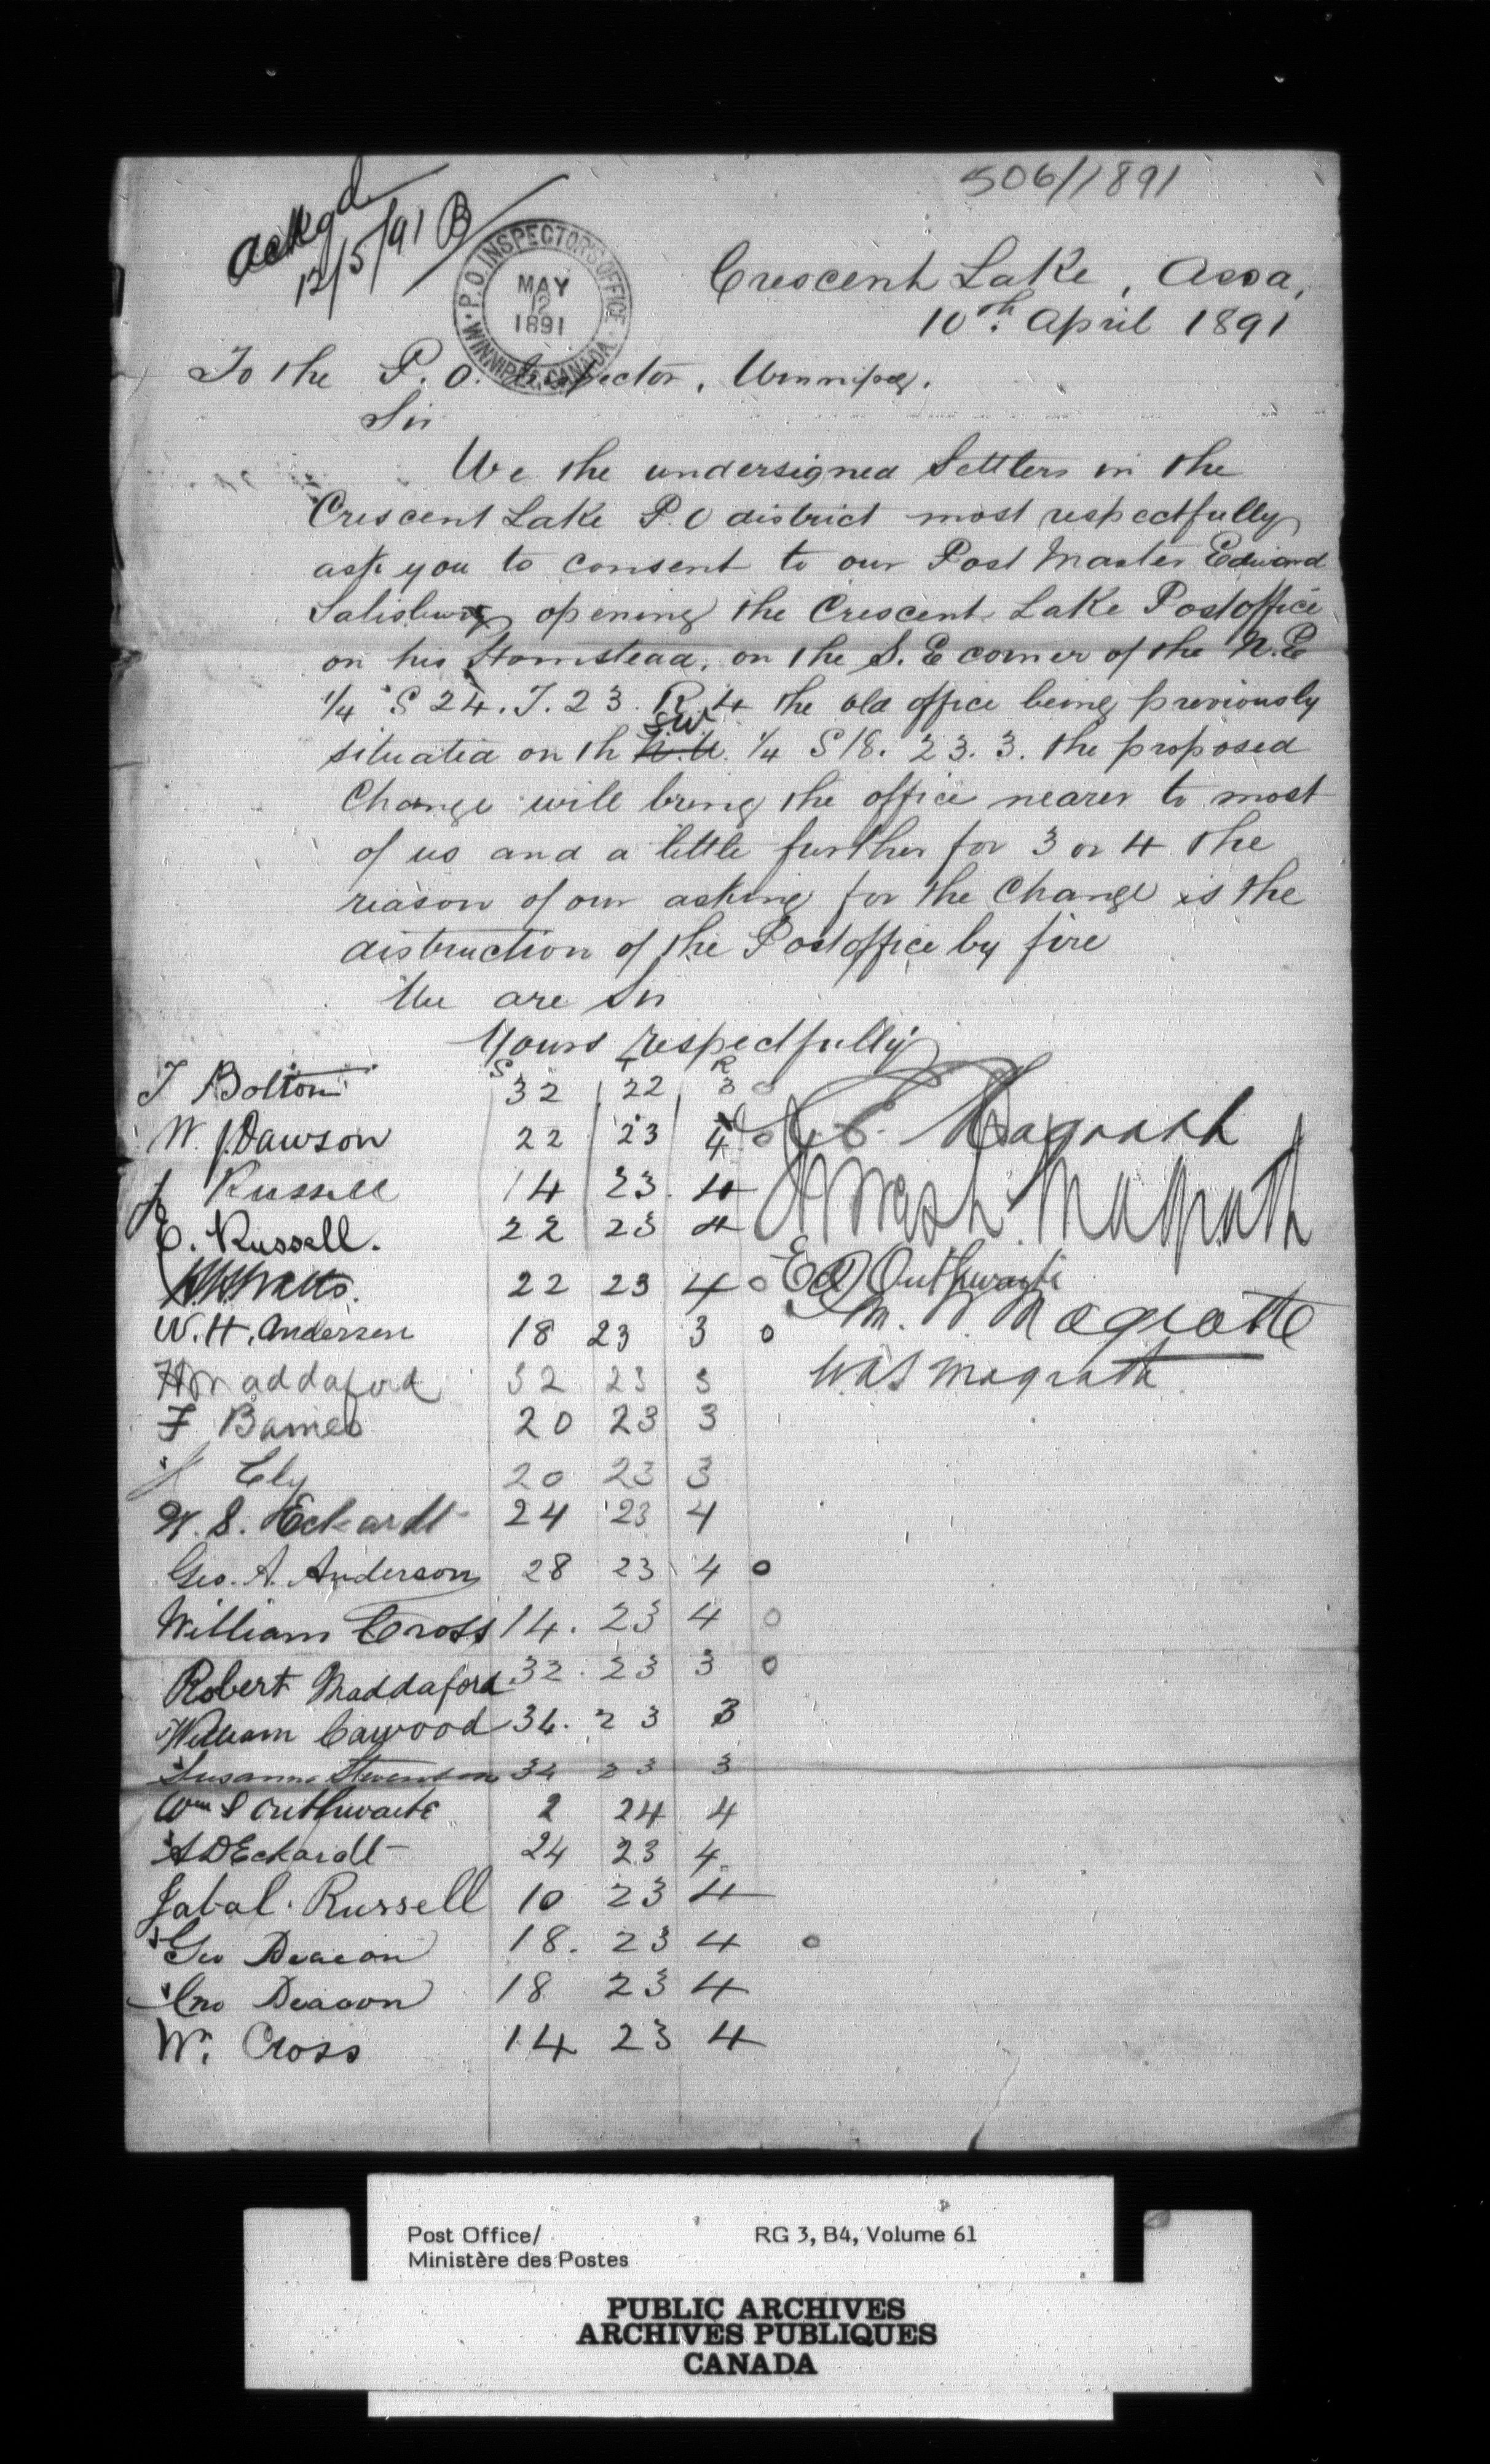 506/1891
Ackgd
12/5/91 B
P.O. INSPECTOR'S OFFICE
MAY
12
1891
WINNIPEG, CANADA
Crescent Lake, Assa,
10th. April 1891
To the P. O. Inspector, Winnipeg.
Sir
We the undersigned Settlers in the
Crescent Lake P.O district most respectfully
ask you to consent to our Post Master Edward
Salisbury opening the Crescent Lake Postoffice
on his Homstead, on the S. E corner of the N.E
1/4 S 24. T. 23. R. 4 the old office being previously
situated on th N.W. SW 1/4 S 18. 23. 3. the proposed
Change will bring the office nearer to most
of us and a little further for 3 or 4 the
reason of our asking for the Change is the
distruction of the Postoffice by fire
We are Sir
Yours respectfully
S T R
T Bolton 32 22 3 o
W. J. Dawson 22 23 4 o
J Russell 14 23. 4
C. Russell. 22 23 4
Watts. 22 23 4 o
W. H. Andersen 18 23 3 o
H Maddaford 32 23 3
F Barnes 20 23 3
Ely 20 23 3
W. S. Eckardt 24 23 4
Geo. A. Anderson 28 23 4 o
William Cross 14. 23 4 o
Robert Maddaford 32. 23 3 o
William Cawood 34. 23 3
Susanna Stevenson 34 23 3
Wm S Outhwaite 2 24 4
A D Eckardt 24 23 4
Jabal. Russell 10 23 4
Geo Deacon 18. 23 4 o
Jno Deacon 18 23 4
W. Cross 14 23 4
E. Magrath
Wash. Magrath
Ed Outhwaite
M. Magrath
W.A.S Magrath
Post Office/
Ministère des Postes
RG 3, B4, Volume 61
PUBLIC ARCHIVES
ARCHIVES PUBLIQUES
CANADA